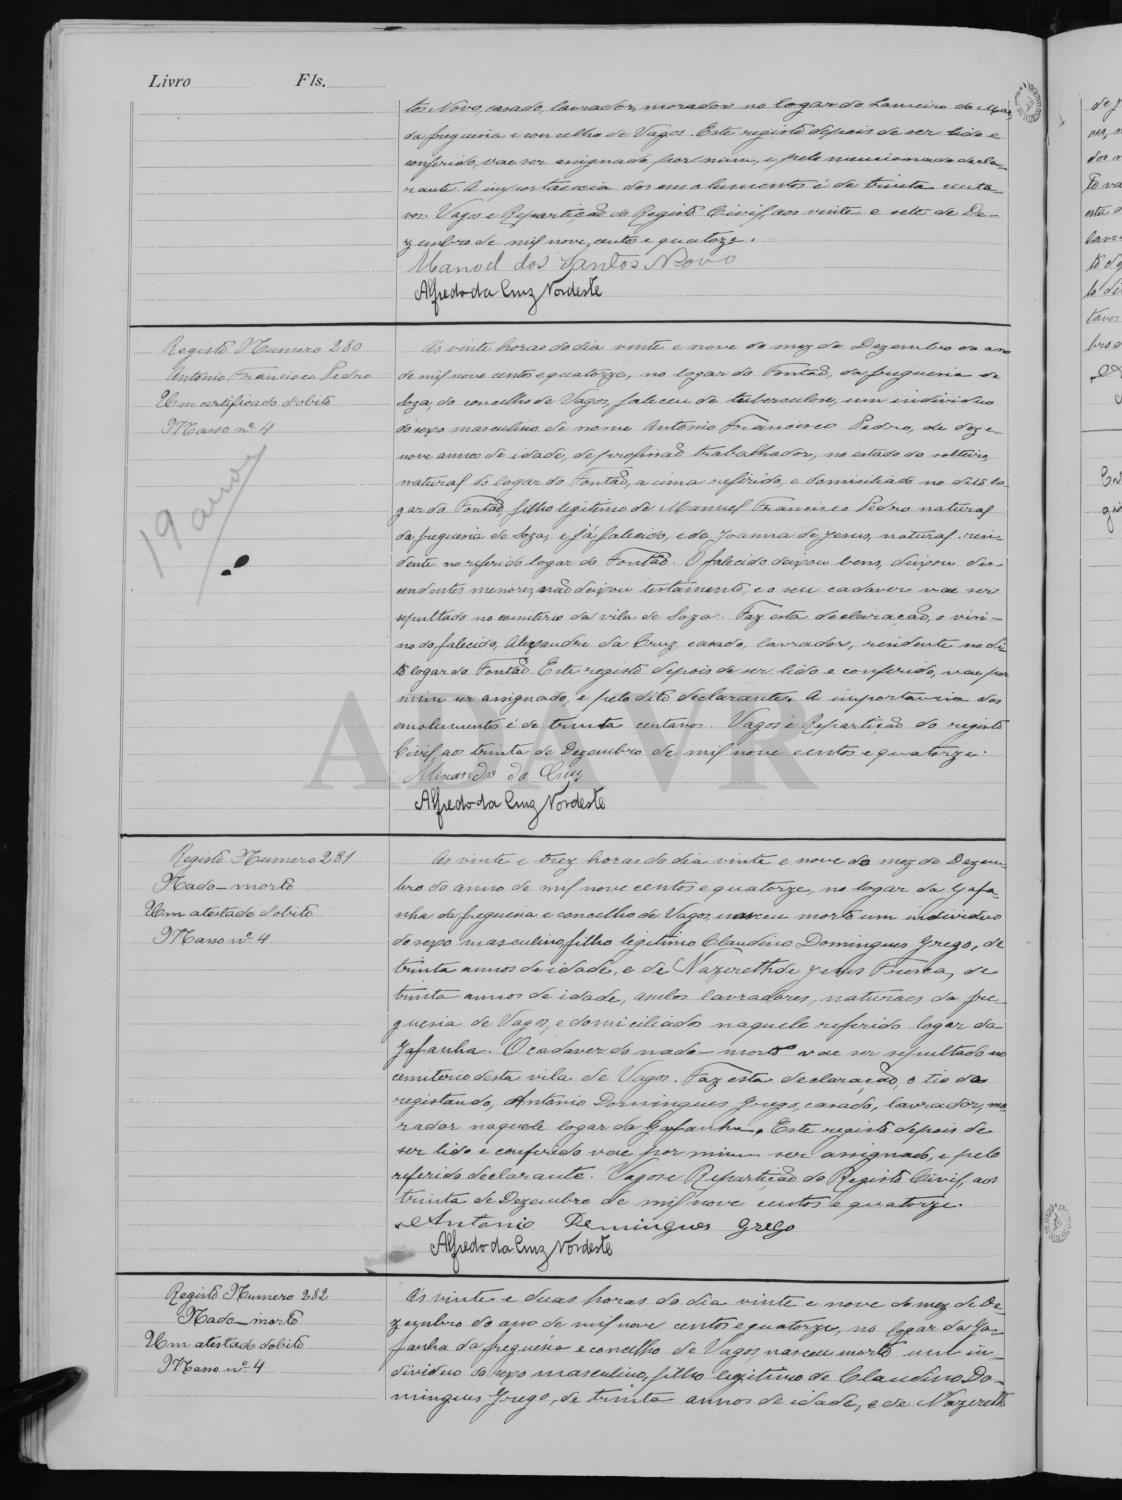 Livro Fls.
tos Novo, casado, lavrador, morador no logar do Lameiro do Mar,
da freguesia e concelho de Vagos. Este registo depois de ser lido e
conferido, vae ser assignado por mim, e pelo mencionado decla-
rante. A importancia dos emolumentos é de trinta centa-
vos. Vagos e Repartição do Registo Civil, aos vinte e sete de De-
zembro de mil nove centos e quatorze.
Manoel dos Santos Novo
Alfredo da Cruz Nordeste
Registo Numero 280
Antonio Francisco Pedro
Um certificado d'obito
Masso nº 4
19 annos
Ás vinte horas do dia vinte e nove do mez de Dezembro do ano
de mil nove centos e quatorze, no logar do Fontão, da freguesia de
Soza, do concelho de Vagos, faleceu de tuberculose, um individuo
do sexo masculino de nome Antonio Francisco Pedro, de deze-
nove annos de idade, de profissão trabalhador, no estado de solteiro,
natural do logar do Fontão, acima referido, e domiciliado no dito lo-
gar do Fontão, filho legitimo de Manuel Francisco Pedro natural
da freguesia de Soza, e já falecido, e de Joanna de Jesus, natural resi-
dente no referido logar do Fontão. O falecido deixou bens, deixou des-
cendentes menores, não deixou testamento, e o seu cadaver vae ser
sepultado no cemiterio da vila de Soza. Faz esta declaração, o visi-
no do falecido, Alexandre da Cruz casado, lavrador, residente no di-
to logar do Fontão. Este registo depois de ser lido e conferido, vae por
mim ser assignado, e pelo dito declarante. A importancia dos
emolumentos é de trinta centavos. Vagos e Repartição do registo
Civil, aos trinta de Dezembro de mil nove centos e quatorze.
Alexandre da Cruz
Alfredo da Cruz Nordeste
ADAVR
Registo Numero 281
Nado-morto
Um atestado d'obito
Masso nº 4
Ás vinte e trez horas do dia vinte e nove do mez de Dezem-
bro do anno de mil nove centos e quatorze, no logar da Gafa-
nha da freguesia e concelho de Vagos, nasceu morto um individuo
do sexo masculino, filho legitimo Claudino Domingues Grego, de
trinta annos de idade, e de Nazereth de Jesus Fresca, de
trinta annos de idade, ambos lavradores, naturaes da fre-
guesia de Vagos, e domiciliados naquele referido logar da
Gafanha. O cadaver do nado-morto vae ser sepultado no
cemiterio desta vila de Vagos. Faz esta declaração, o tio do
registando, Antonio Domingues Grego, casado, lavrador, mo-
rador naquele logar da Gafanha. Este registo depois de
ser lido e conferido vae por mim ser assignado, e pelo
referido declarante. Vagos e Repartição do Registo Civil, aos
trinta de Dezembro de mil nove centos e quatorze.
Antonio Domingues Grego
Alfredo da Cruz Nordeste
Registo Numero 282
Nado-morto
Um atestado dobito
Masso nº 4
Ás vinte e duas horas do dia vinte e nove do mez de De-
zembro do ano de mil nove centos e quatorze, no logar da Ga-
fanha da freguesia e concelho de Vagos nasceu morto um in-
dividuo do sexo masculino, filho legitimo de Claudino Do-
mingues Grego, de trinta annos de idade, e de Nazereth